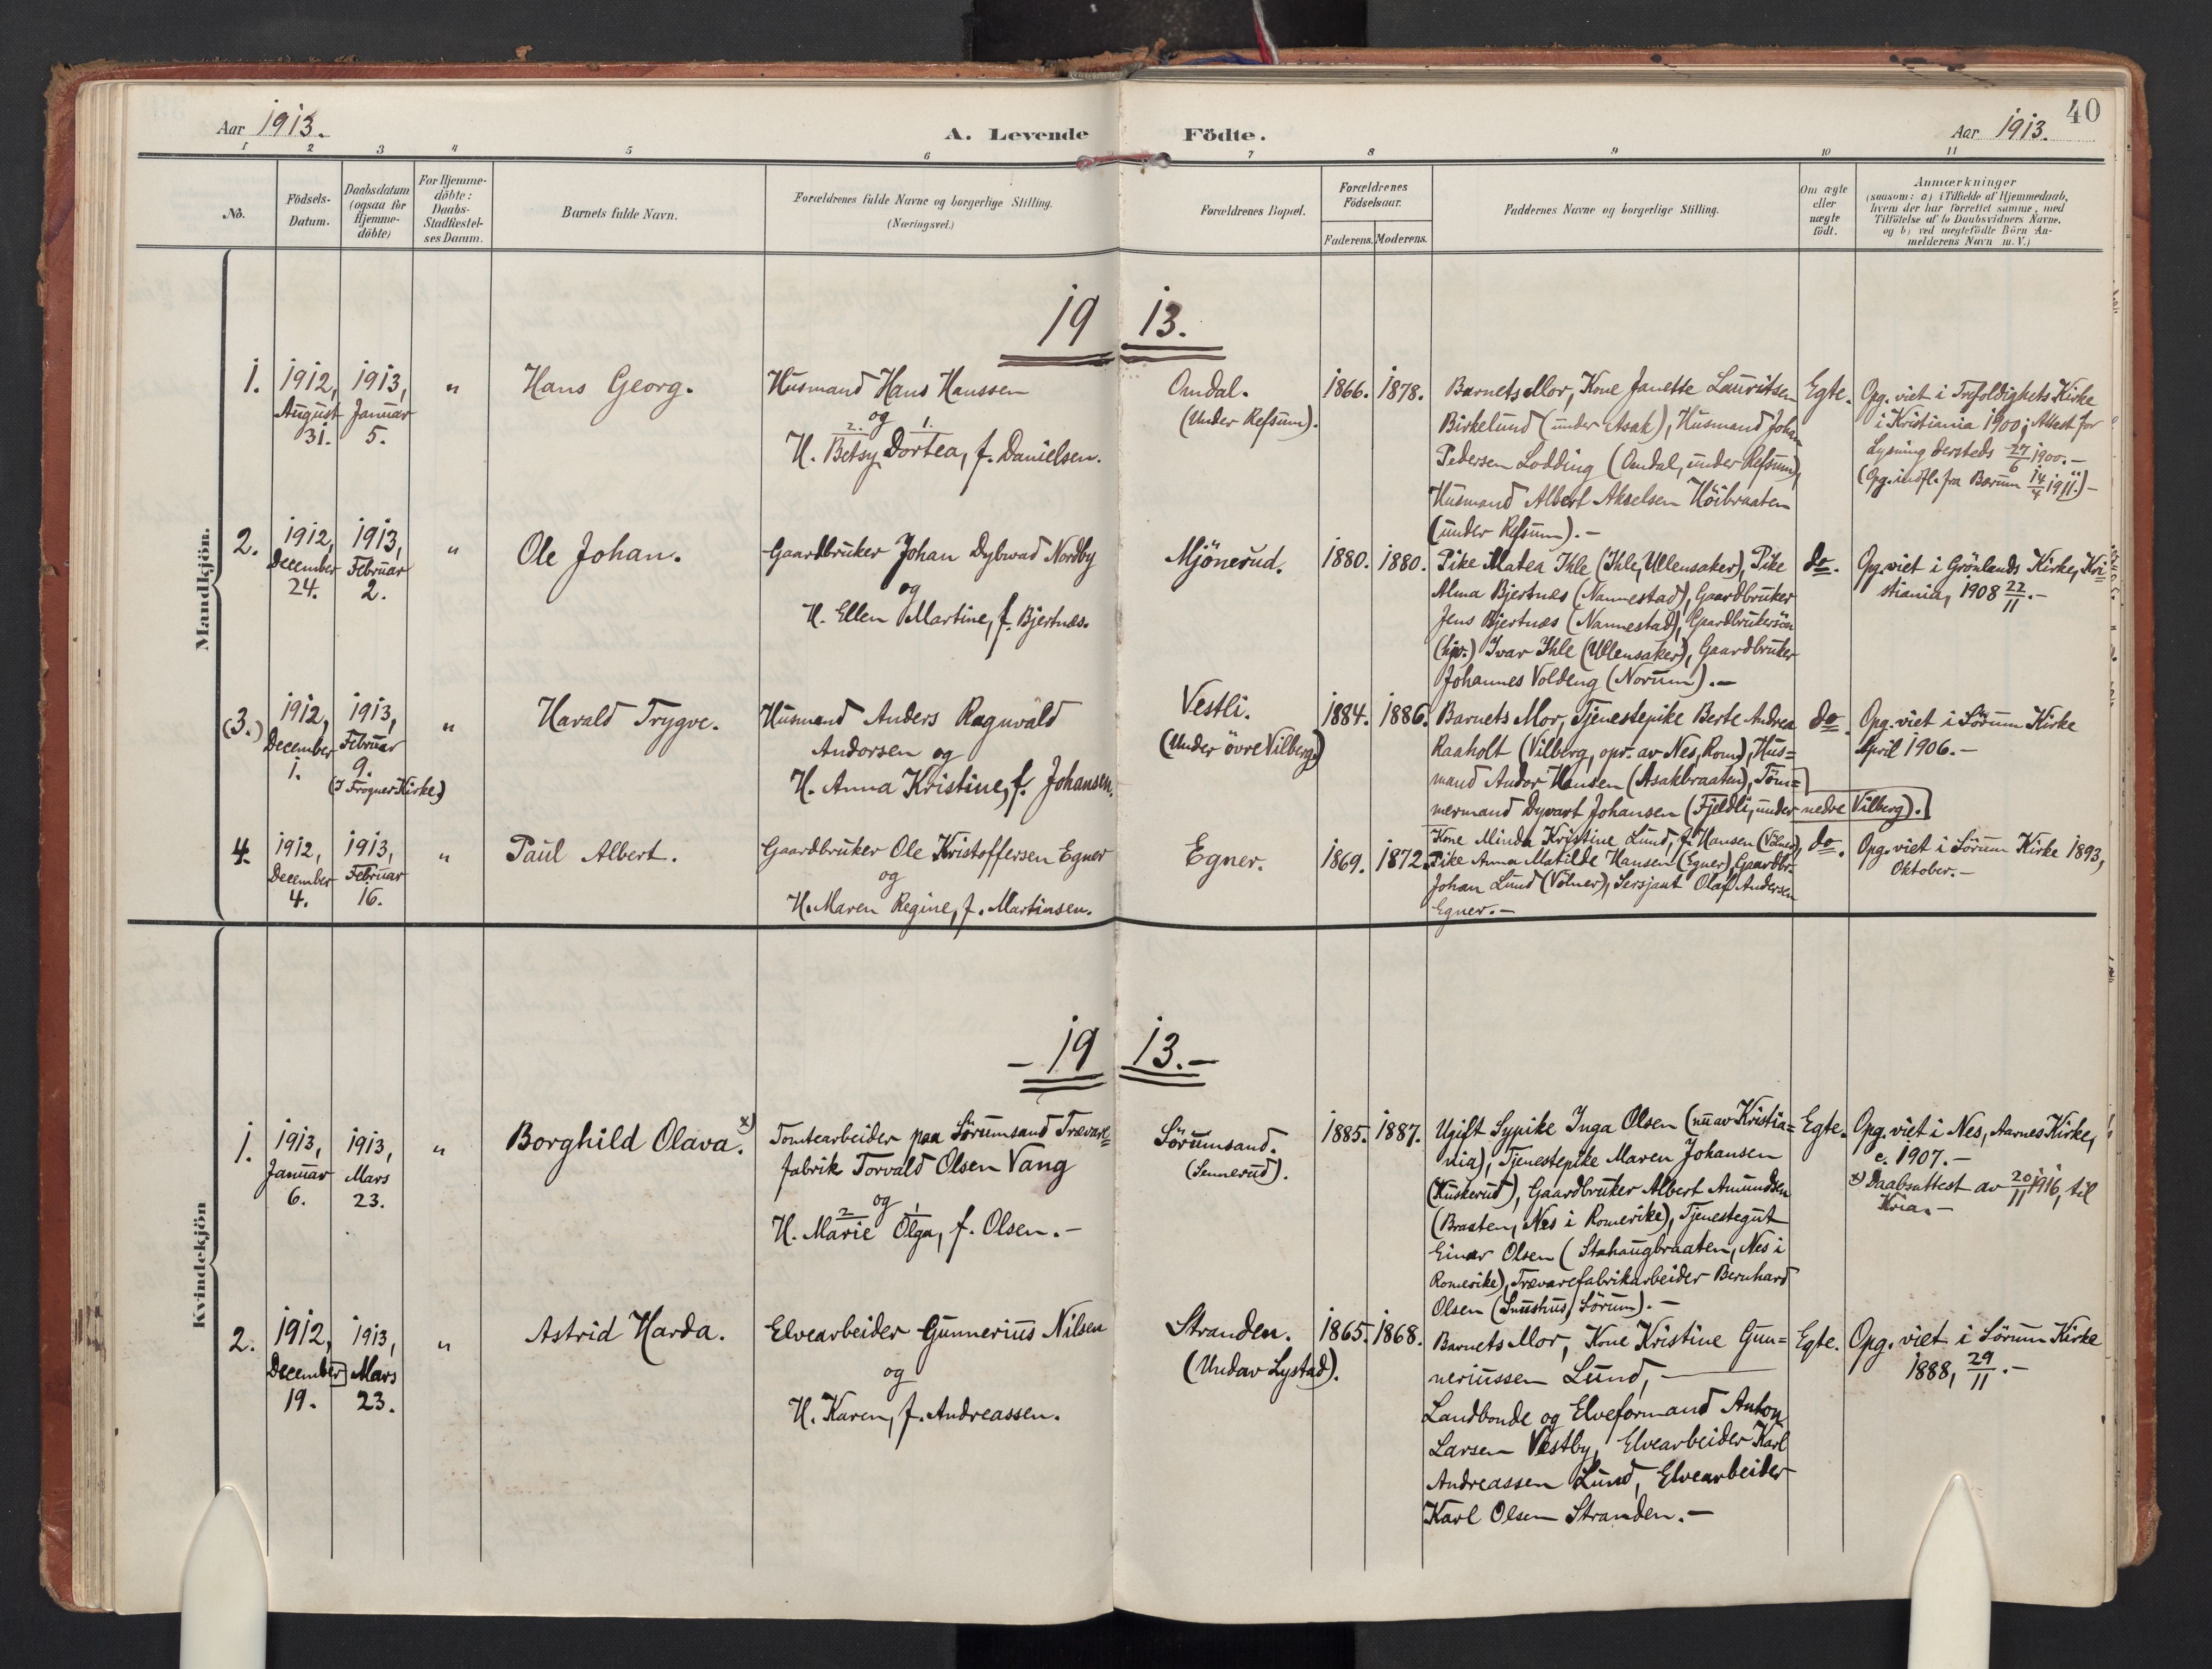 40
Aar 1913.
A. Levende Födte.
Aar 1913.
1 2 3 4 5 6 7 8 9 10 11
No.
Födsels-
Datum.
Daabsdatum
(ogsaa for
Hjemme-
döbte)
For Hjemme-
döbte:
Daabs-
Stadfæstel-
ses Datum.
Barnets fulde Navn.
Forældrenes fulde Navne og borgerlige Stilling.
(Næringsvei.)
Forældrenes Bopæl.
Forældrenes
Födselsaar.
Faderens. Moderens.
Faddernes Navne og borgerlige Stilling.
Om ægte
eller
uægte
födt.
Anmærkninger
(saasom: a) i Tilfælde af Hjemmedaab,
hvem der har forrettet samme, med
Tilföielse af to Daabsvidners Navne,
og b) ved uægtefödte Börn An-
melderens Navn m. V.)
Mandkjön.
19 13.
1.
1912,
August
31.
1913,
Januar
5.
"
Hans Georg.
Husmand Hans Hanssen
og
2. 1.
H. Betsy Dortea, f. Danielsen.
Omdal.
(Under Refsum).
1866. 1878.
Barnets Mor, Kone Janette Lauritsen
Birkelund (under Asak), Husmand Johan
Pedersen Lodding (Omdal, under Refsum),
Husmand Albert Akselsen Höibraaten
(under Refsum). -
Egte.
Opg. viet i Trefoldighets Kirke
i Kristiania 1900; Attest for
Lysning dersteds 27/6 1900. -
(Opg. indfl. fra Bærum 14/4 1911.) -
2.
1912,
December
24.
1913,
Februar
2.
"
Ole Johan.
Gaardbruker Johan Dybwad Nordby
og
H. Ellen Martine, f. Bjertnæs.
Mjönerud.
1880. 1880.
Pike Matea Ihle (Ihle, Ullensaker), Pike
Alma Bjertnæs (Nannestad), Gaardbruker
Jens Bjertnæs (Nannestad), Gaardbrukersön
Ivar Ihle (Ullensaker), Gaardbruker
Johannes Voldeng (Norum). -
do.
Opg. viet i Grönlands Kirke, Kri=
stiania, 1908 22/11. -
(3.)
1912,
December
1.
1913,
Februar
9.
(I Frogner Kirke)
"
Harald Trygve.
Husmand Anders Ragnvald
Andorsen og
H. Anna Kristine, f. Johansen.
Vestli.
(Under övre Vilberg)
1884. 1886.
Barnets Mor, Tjenestepike Berte Andrea
Raaholt (Vilberg, opr. av Nes, Rom), Hus=
mand Andor Hansen (Asakbraaten), Töm=
mermand Dyvart Johansen (Fjeldli, under nedre Vilberg).
do.
Opg. viet i Sörum Kirke
April 1906. -
4.
1912,
December
4.
1913,
Februar
16.
"
Paul Albert.
Gaardbruker Ole Kristoffersen Egner
og
H. Maren Regine, f. Martinsen.
Egner.
1869. 1872.
Kone Minda Kristine Lund, f. Hansen (Völner),
Pike Anna Matilde Hansen (Egner), Gaardbr.
Johan Lund (Völner), Sersjant Olaf Andersen
Egner. -
do.
Opg. viet i Sörum Kirke 1893,
Oktober. -
Kvindekjön
- 19 13. -
1.
1913,
Januar
6.
1913,
Mars
23.
"
Borghild Olava. x)
Tomtearbeider paa Sörumsand Trævare=
fabrik Torvald Olsen Vang
og
2 1
H. Marie Olga, f. Olsen. -
Sörumsand.
(Sennerud).
1885. 1887.
Ugift Sypike Inga Olsen (nu av Kristia=
nia), Tjenestepike Maren Johansen
(Kuskerud), Gaardbruker Albert Amundsen
(Braaten, Nes i Romerike), Tjenestegut
Einar Olsen (Stahaugbraaten, Nes i
Romerike), Trævarefabrikarbeider Bernhard
Olsen (Snushus, Sörum). -
Egte.
Opg. viet i Nes, Aarnes Kirke,
c. 1907. -
x) Daabsattest av 20/11 1916, til
Kria. -
2.
1912,
December
19.
1913,
Mars
23.
"
Astrid Harda.
Elvearbeider Gunnerius Nilsen
og
H. Karen, f. Andreassen.
Stranden.
(Undav Lystad).
1865. 1868.
Barnets Mor, Kone Kristine Gun=
neriussen Lund, -
Landbonde og Elveformand Anton
Larsen Vestby, Elvearbeider Karl
Andreassen Lund, Elvearbeider
Karl Olsen Stranden. -
Egte.
Opg. viet i Sörum Kirke
1888, 29/11. -